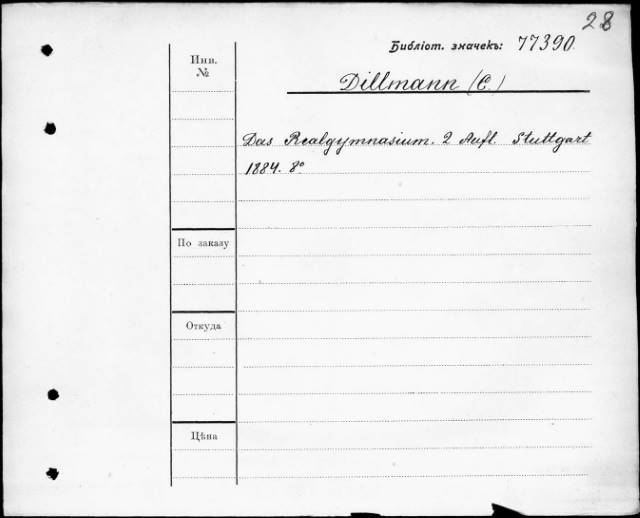 28
Библіот. значекъ: 77390.
Инв.
№
Dillmann (C.)
Das Realgymnasium. 2 Aufl. Stuttgart
1884. 8°.
По заказу
Откуда
Цѣна